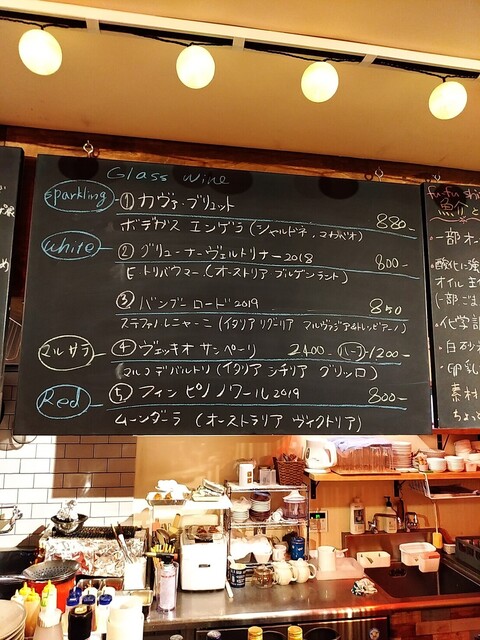 Glass wine
Sparkling ① カヴァ・ブリュット 880-
ボデガス エンゲラ (シャルドネ、マカベオ)
White ② グリューナーヴェルトリナー2018 800-
E トリバウマー (オーストリア ブルゲンラント)
③ バンブーロード2019 850
ステファノレニャーニ (イタリア リグーリア マルヴァジア&トレッビアーノ)
マルサラ ④ ヴェッキオ サンペーリ 2400- ハーフ 1200-
マルコ デ バルトリ (イタリア シチリア グリッロ)
Red ⑤ フィン ピノ ノワール2019 800-
ムーンダーラ (オーストラリア ヴィクトリア)
・一部オー
・酸化に
オイル
(一部ご
・化学
・白
・卵乳
素材
ちょっ